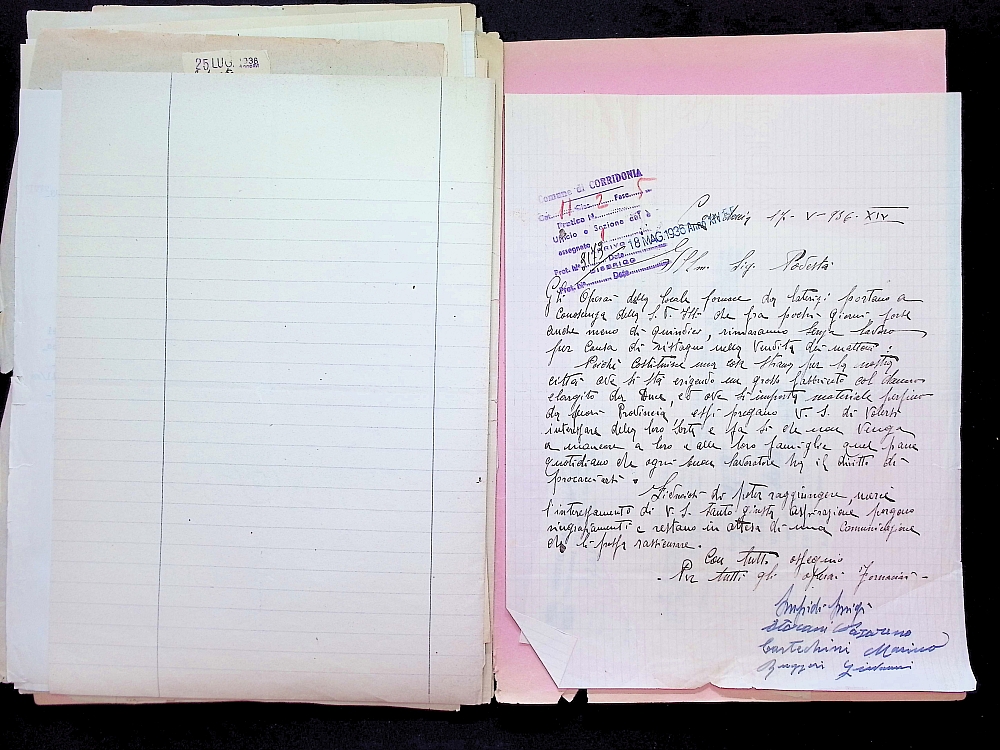 25 LUG. 1936
Comune di CORRIDONIA
Cat. 11 Clas. 2 Fasc. 5
Pratica N.
Ufficio e Sezione cui è
assegnato
Prot. N. Data 18 MAG. 1936 Anno XIV
Prot. N. Data
Corridonia 17-V-936-XIV
Ill.m. Sig. Podestà
Gli Operai della locale fornace da laterizi portano a
Conoscenza della S.V. Ill. che fra pochi giorni, forse
anche meno di quindici, rimaranno senza lavoro
per causa di ristagno nella Vendita dei mattoni.
Poichè Costituisce una cosa strana per la nostra
città ove si sta erigendo un grosso fabbricato col denaro
elargito da Duce, ed ove si importa materiale perfino
da fuori Provincia, essi pregano V. S. di Volersi
interessare della loro Sorte e fa si che non Venga
a mancare a loro e alle loro famiglie quel pane
quotidiano che ogni buon lavoratore ha il diritto di
procacciarsi.
Fiduciosi di poter raggiungere, mercè
l'interessamento di V. S. tanto giusta aspirazione porgono
ringraziamenti e restano in attesa di una Comunicazione
che li possa rassicurare.
Con tutto ossequio
- Per tutti gli operai Fornaciai -
Luigi
Storani Nazareno
Cartechini Marino
Ruggeri Giovanni